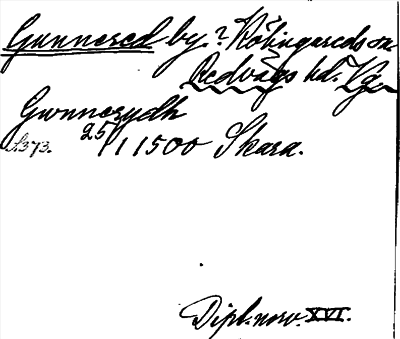 Gunnered by. ? Kölingareds sn
Redvägs hd. Vg.
Gwnnerydh
S. 373. 25/1 1500 Skara.
Dipl. norv. XVI.